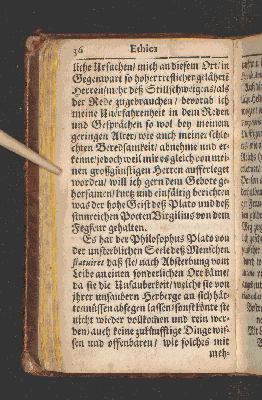 36 Ethica
liche Ursachen / mich an diesem Ort / in
Gegenwart so hoher trefflicher gelährtē
Herren / mehr deß Stillschweigens / als
der Rede zugebrauchen / bevorab ich
meine Unerfahrenheit in dem Reden
und Gesprächen so wol bey meinem
geringen Alter / wie auch meiner schle-
chten Beredsamkeit / abnehme und er-
kenne / jedoch weil mir es gleich von mei-
nen großgünstigen Herren aufferleget
worden / will ich gern dem Gebote ge-
horsamen / kurtz und einfältig berichten
was der hohe Geist deß Plato und deß
sinnreichen Poeten Virgilius von dem
Fegfeur gehalten.
Es hat der Philosophus Plato von
der unsterblichen Seele deß Menschen
statuiret daß sie / nach Absterbung vom
Leibe an einen sonderlichen Ort käme /
da sie die Unsauberkeit / welche sie von
ihrer unsaubern Herberge an sich hät-
te müssen abfegen lassen / sonst könte sie
nicht wieder vollkom̄en und rein wer-
den / auch keine zukünfftige Dinge wis-
sen und offenbaren / wie solches mit
meh-